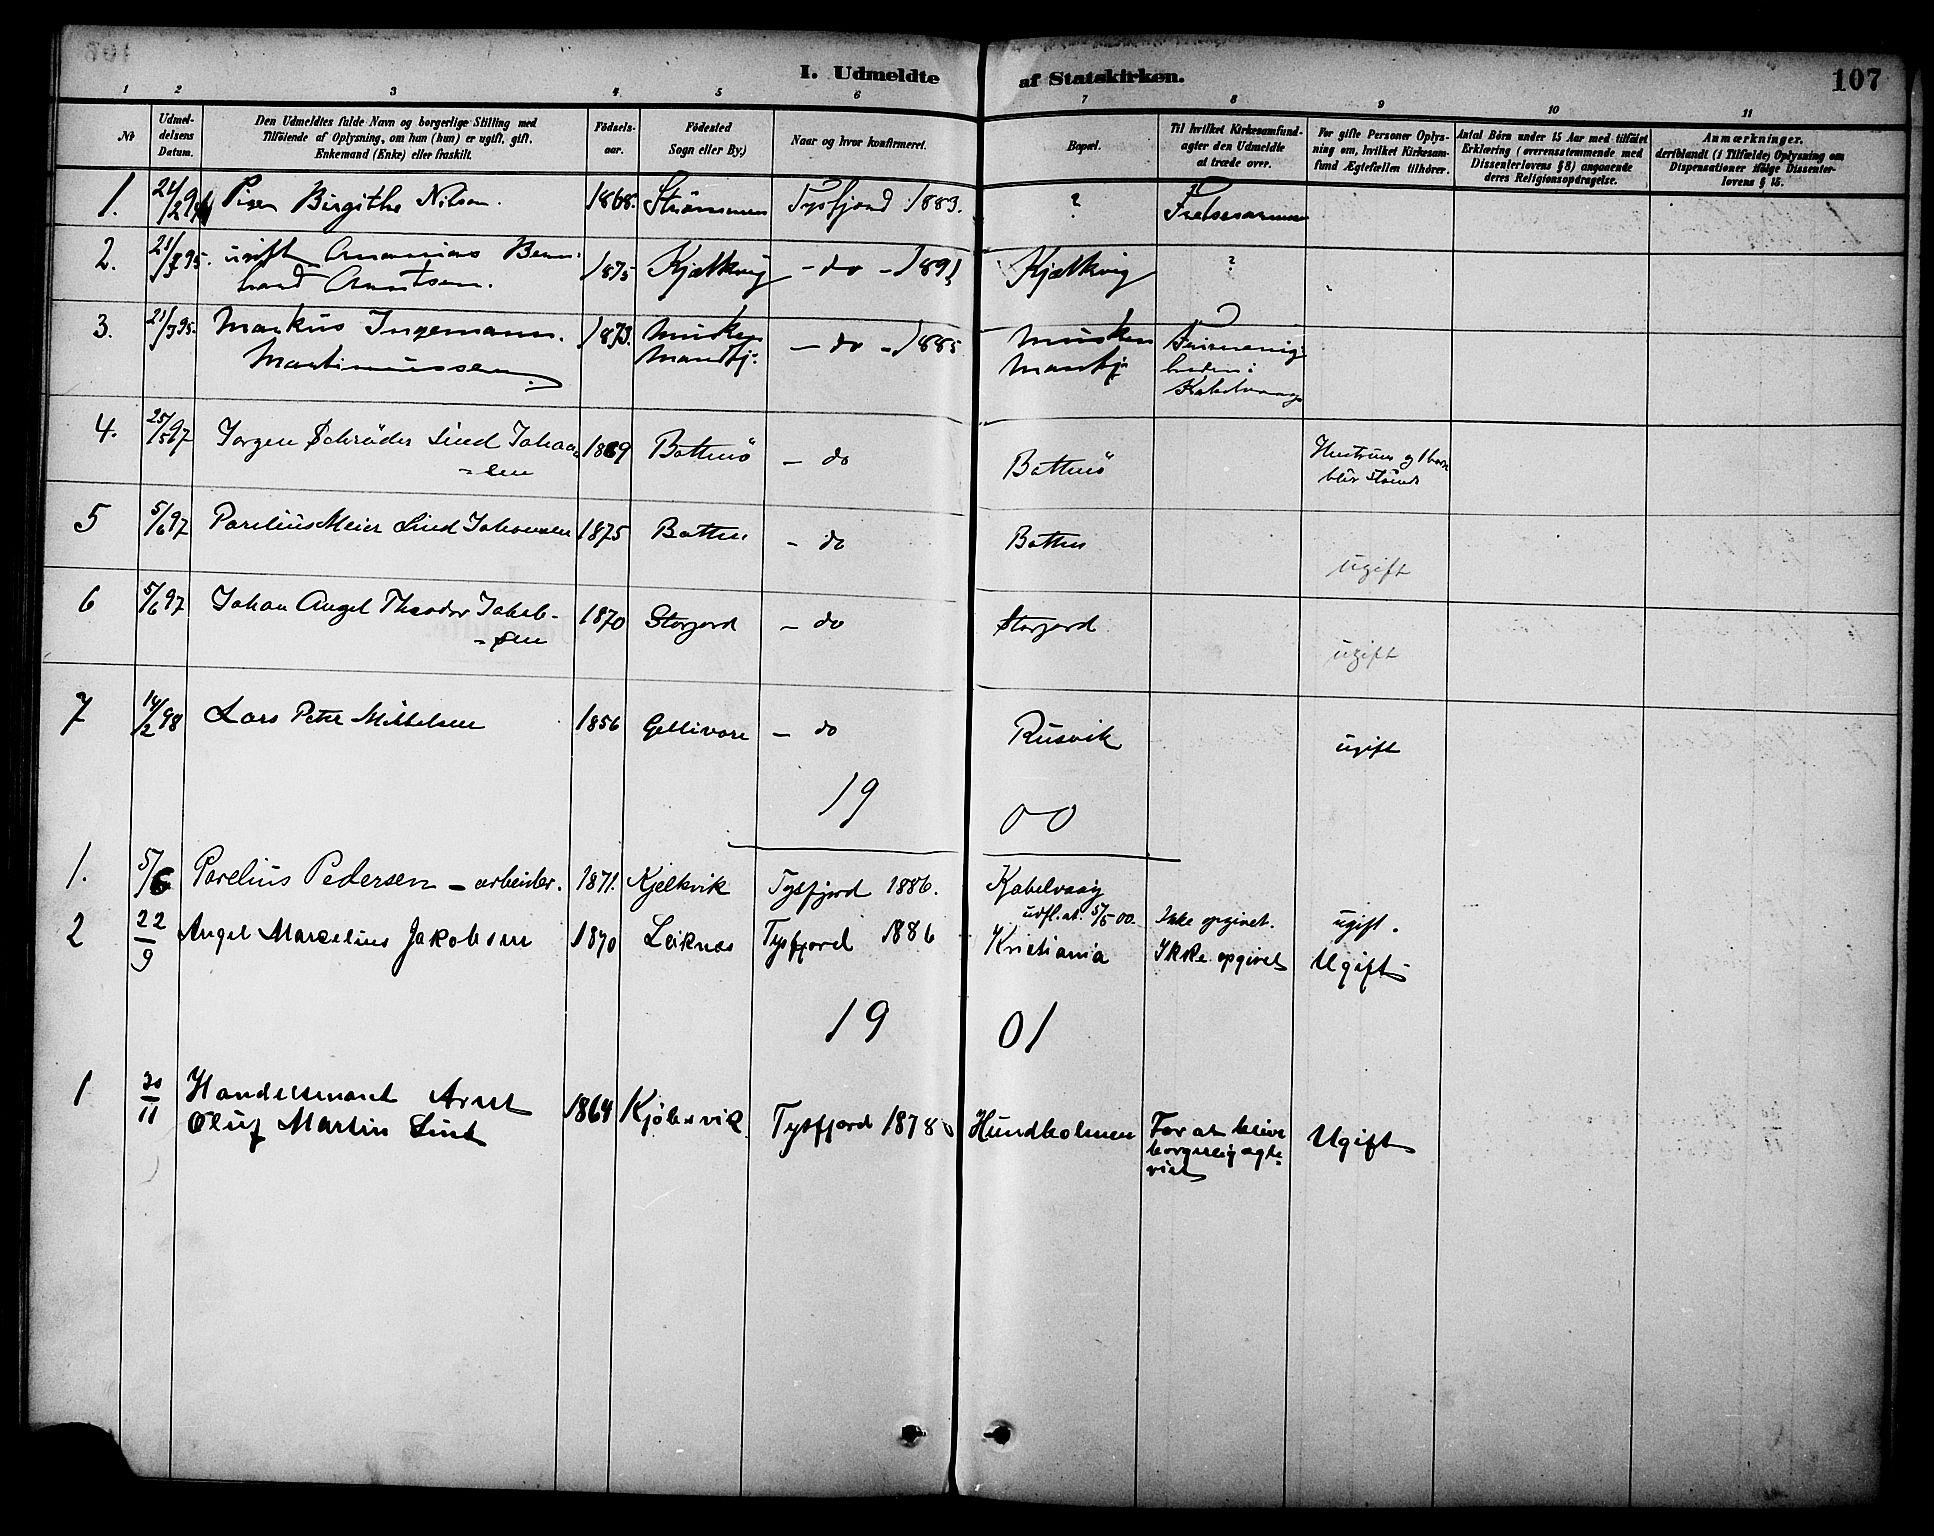 107
I. Udmeldte af Statskirken.
1 2 3 4 5 6 7 8 9 10 11
No
Udmel-
delsens
Datum.
Den Udmeldtes fulde Navn og borgerlige Stilling med
Tilføiende af Oplysning, om han (hun) er ugift, gift,
Enkemand (Enke) eller fraskilt.
Fødsels-
aar.
Fødested
Sogn eller By.)
Naar og hvor konfirmeret.
Bopæl.
Til hvilket Kirkesamfund-
agter den Udmeldte
at træde over.
For gifte Personer Oplys-
ning om, hvilket Kirkesam-
fund Ægtefællen tilhører.
Antal Börn under 15 Aar med tilføiet
Erklæring (overensstemmende med
Dissenterlovens § 8) angaaende
deres Religionsopdragelse.
Anmærkninger.
deriblandt (i Tilfælde) Oplysning om
Dispensationer ifølge Dissenter-
lovens § 15.
1. 24/2 94 Pige Birgithe Nilsen. 1868. Strømmen Tysfjord 1883. ? Frelsesarmeen
2. 21/7 95. Ananias Bern-
hard Arntsen. 1875 Kjælkvig - do - 1891 Kjælkvig ?
3. 21/7 95. Markus Ingemann. 1873. Musken - do - 1885 Musken
Martinussen Manfj. Manfj.
heden i
Kabelvaag
4. 25/5 97 Jørgen Schrøder Lind Johan 1869 Botten - do Botten Hustruen og 1 barn
-sen blir i
5 5/6 97 Parelius Meier Lind Johansen 1875 Botten - do Botten ugift
6 5/6 97 Johan Angel Theodor Jakob- 1870 Storjord - do Storjord ugift
-sen
7 14/2 98 Lars Peter Mikkelsen 1856 Gellivare - do Rusvik ugift
19 00
1. 5/6 Parelius Pedersen - arbeider. 1871. Kjelkvik Tysfjord 1886. Kabelvaag
udfl.at. 5/5 00. Ikke opgivet. ugift.
2 22/9 Angel Marselius Jakobsen 1870 Leiknes Tysfjord 1886 Kristiania Ikke opgivet Ugift
19 01
1 30/11 Handelsmand Arnt
Oluf Martin Lind 1864 Kjøbsvik Tysfjord 1878 Hundholmen For at blive
borgerlig agte-
viet Ugift